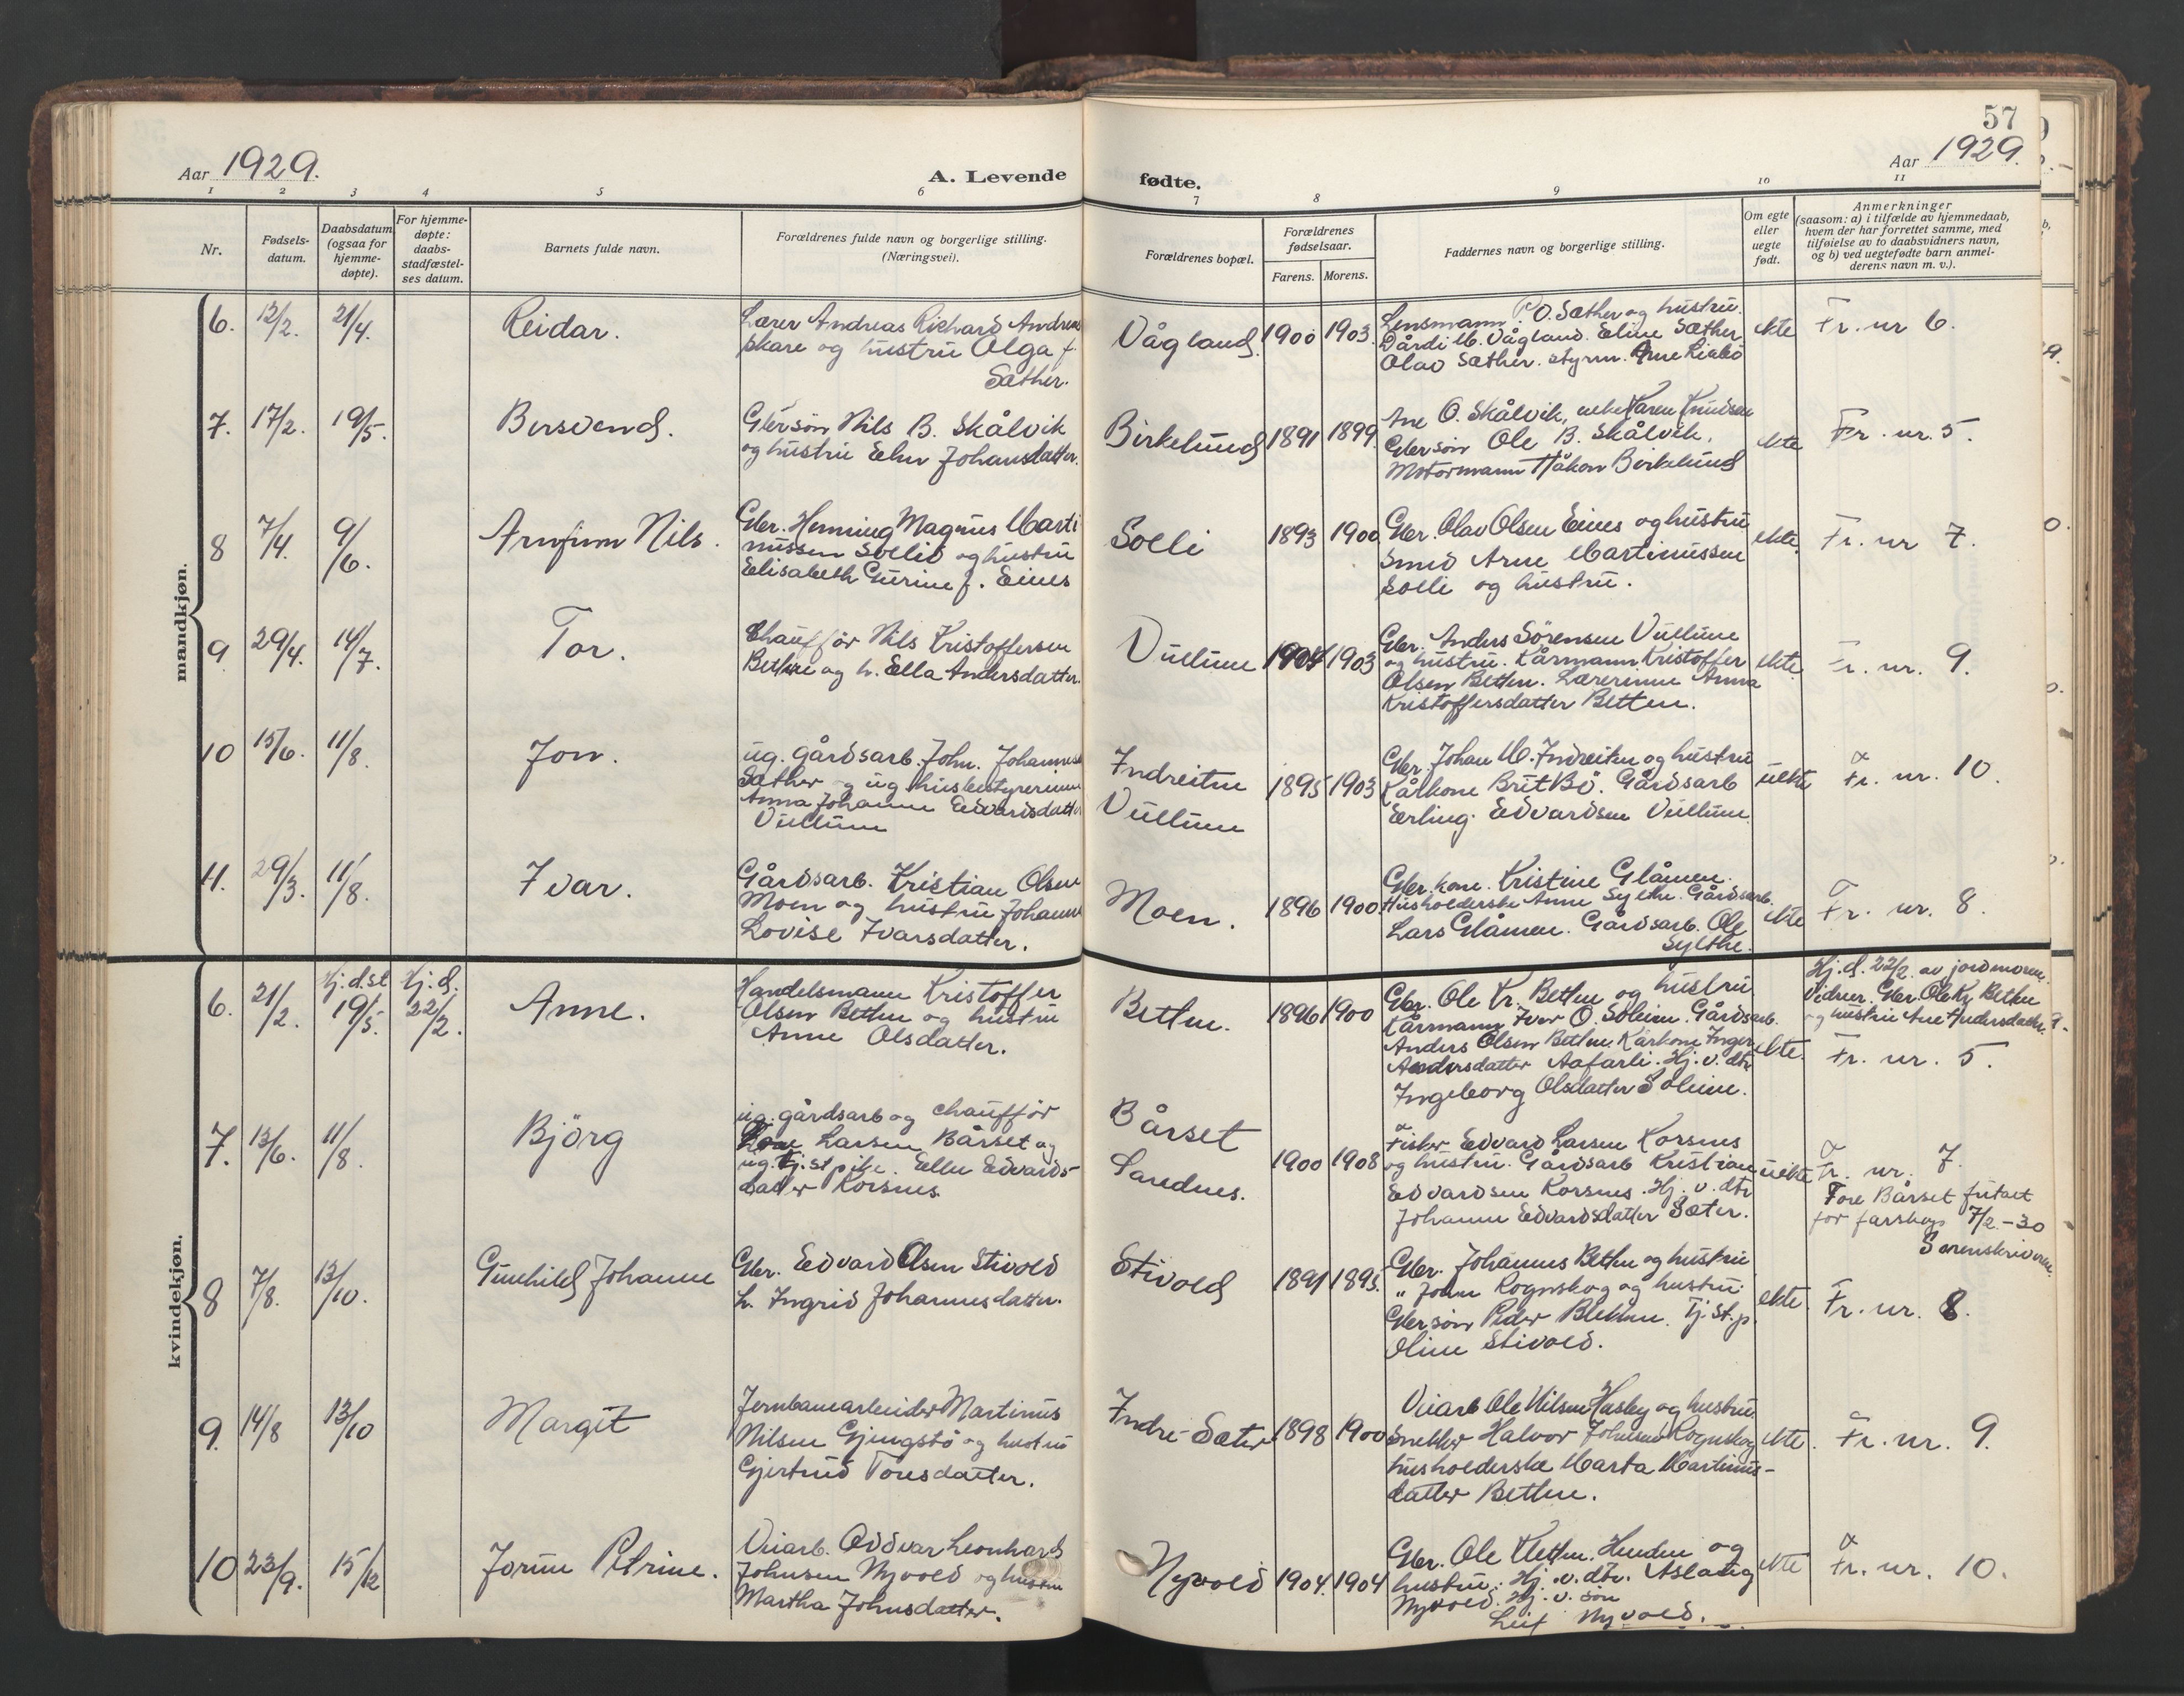 57
Aar 1929.
A. Levende
fødte.
Aar 1929.
1 2 3 4 5 6 7 8 9 10 11
Nr.
Fødsels-
datum.
Daabsdatum
(ogsaa for
hjemme-
døpte).
For hjemme-
døpte:
daabs-
stadfæstel-
ses datum.
Barnets fulde navn.
Forældrenes fulde navn og borgerlige stilling.
(Næringsvei).
Forældrenes bopæl.
Forældrenes
fødselsaar.
Farens. Morens.
Faddernes navn og borgerlige stilling.
Om egte
eller
uegte
født.
Anmerkninger
(saasom: a) i tilfælde av hjemmedaab,
hvem der har forrettet samme, med
tilføielse av to daabsvidners navn,
og b) ved uegtefødte barn anmel-
derens navn m. v.).
mandkjøn.
6. 12/2. 21/4.
Reidar.
Lærer Andreas Richard Andreas
skare og hustru Olga f.
Sæther.
Vågland. 1900 1903.
Lensmann P.O. Sæther og hustru.
Vågland. Eline Sæther
Olav Sæther. styrm. Arne
ekte
Fr. nr 6.
7. 17/2. 19/5.
Bersvend.
Gbr.søn Nils B. Skålvik
og hustru Elen Johansdatter.
Birkelund 1891 1899.
Ane O. Skålvik, enke Karen Knudsen
Gbr søn Ole B. Skålvik,
Motormann Håkon Birkelund
ekte
Fr. nr. 5.
8 7/4. 9/6.
Arnfinn Nils.
Gbr. Henning Magnus Marti
nussen Solli og hustru
Elisabeth Gurine f. Eines
Solli 1893 1900
Gbr. Olav Olsen Eines og hustru
Smed Arne Martinussen
Solli og hustru.
ekte.
Fr. nr 7.
9 29/4. 14/7.
Tor.
Chauffør Nils Kristoffersen
Betten og h. Ella Andersdatter.
Vullum 1904 1903
Gbr. Anders Sørensen Vullum
og hustru. Kårmann Kristoffer
Olsen Betten. Lærerinne Anna
Kristoffersdatter Betten.
ekte.
Fr. nr. 9.
10 15/6. 11/8.
Jon.
ug. gårdsarb. John. Johannes
Sæther og ug husbestyrerinne
Anna Johanne Edvardsdatter
Vullum
Indreiten
Vullum
1895 1903
Gbr. Johan M. Indreiten og hustru
Kårkone Brit Bø. Gårdsarb
Erling Edvardsen Vullum.
uekte
Fr. nr. 10.
11. 29/3. 11/8.
Ivar.
Gårdsarb. Kristian Olsen
Moen og hustru Johanne
Lovise Ivarsdatter.
Moen. 1896 1900
Gbr. kone. Kristine Glåmen.
Husholderske Anne Sylthe. Gårdsarb.
Lars Glåmen. Gårdsarb. Ole
Sylthe.
ekte
Fr. nr. 8.
kvindekjøn.
6. 21/2. Hj.d.st 19/5. Hj.d. 22/2.
Anne.
Handelsmann Kristoffer
Olsen Betten og hustru
Anne Olsdatter.
Betten. 1896 1900
Gbr. Ole Kr. Betten og hustru
Kårmann Iver O. Soleim. Gårdsarb.
Anders Olsen Betten. Kårkone Inger
Andersdatter Aafarli. Hj. v. dtr
Ingeborg Olsdatter Soleim.
ekte.
Hj.d. 22/2. av jordmoren.
Vidner. Gbr. Ole Kr. Betten
og hustru Ane Andersdatter.
Fr. nr. 5.
7. 13/6. 11/8.
Bjørg
ug. gårdsarb og chauffør
Tore Larsen Bårset og
ug. tj.st pike. Ellen Edvards-
datter Korsnes.
Bårset
Sandnes.
1900 1908
Fisker Edvard Larsen Korsnes
og hustru. Gårdsarb Kristian
Edvardsen Korsnes. Hj. v. dtr
Johanne Edvardsdatter Sæter.
uekte
Fr. nr. 7.
Tore Bårset fritatt
for farskap 7/2.-30
Sorenskriveren.
8 7/8. 13/10.
Gunhild Johanne
Gbr. Edvard Olsen Stivold
h. Ingrid Johannesdatter.
Stivold 1891 1895.
Gbr. Johannes Betten og hustru
" John Rognskog og hustru
Gbr søn Peder Bletten. Tj.st.p.
Oline Stivold.
ekte.
Fr. nr. 8.
9. 14/8 13/10
Margit
Jernbanearbeider Martinus
Nilsen Gjengstø og hustru
Gjertrud Tøresdatter.
Indre-Sæter 1898 1900
Viarb Ole Nilsen Hasby og hustru.
Snekker Halvor Johnsen Rognskog
husholderske Marta Martinus-
datter Betten.
ekte.
Fr. nr. 9.
10 23/9. 15/12
Jorun Petrine.
Viarb. Oddvar Leonhard
Johnsen Nyvold og hustru
Martha Johnsdatter.
Nyvold 1904. 1904
Gbr. Ole Henden og
hustru. Hj. v. dtr. Aslaug
Nyvold. Hj. v. søn
Leif Nyvold.
ekte
Fr. nr. 10.